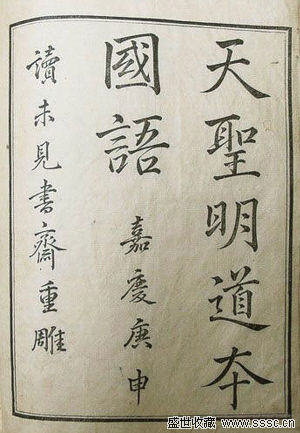 天聖明道本
國語
嘉慶庚申
讀未見書齋重雕
盛世收藏
www.sssc.cn